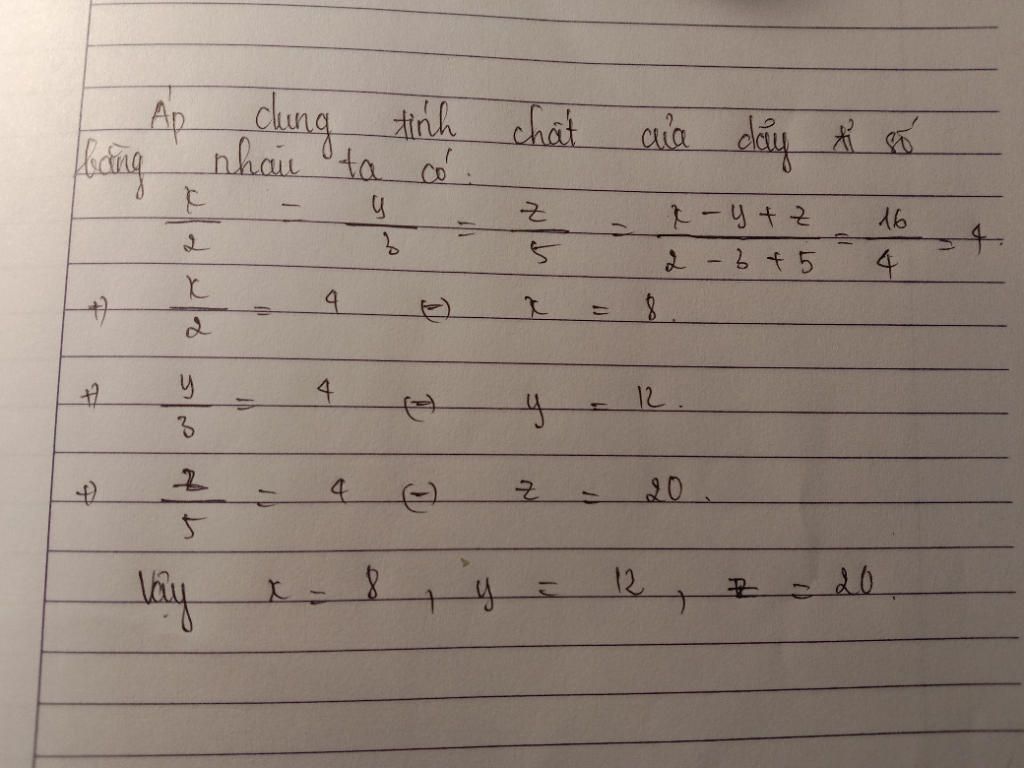 Áp dụng tính chất của dãy tỉ số
bằng nhau ta có:
x/2 = y/3 = z/5 = (x - y + z)/(2 - 3 + 5) = 16/4 = 4.
+) x/2 = 4 (=) x = 8.
+) y/3 = 4 (=) y = 12.
+) z/5 = 4 (=) z = 20.
Vậy x = 8, y = 12, z = 20.